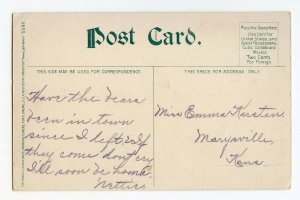 Post Card.
Place the Stamp Here
One Cent for
United States and
Island Possessions,
Cuba, Canada and
Mexico.
Two Cents
For Foreign.
THIS SIDE MAY BE USED FOR CORRESPONDENCE.
THIS SPACE FOR ADDRESS ONLY.
Have the bears
been in town
since I left? If
they come don't cry
I'll soon be home.
Nettie
Miss Emma Kersten
Marysville,
Kans.